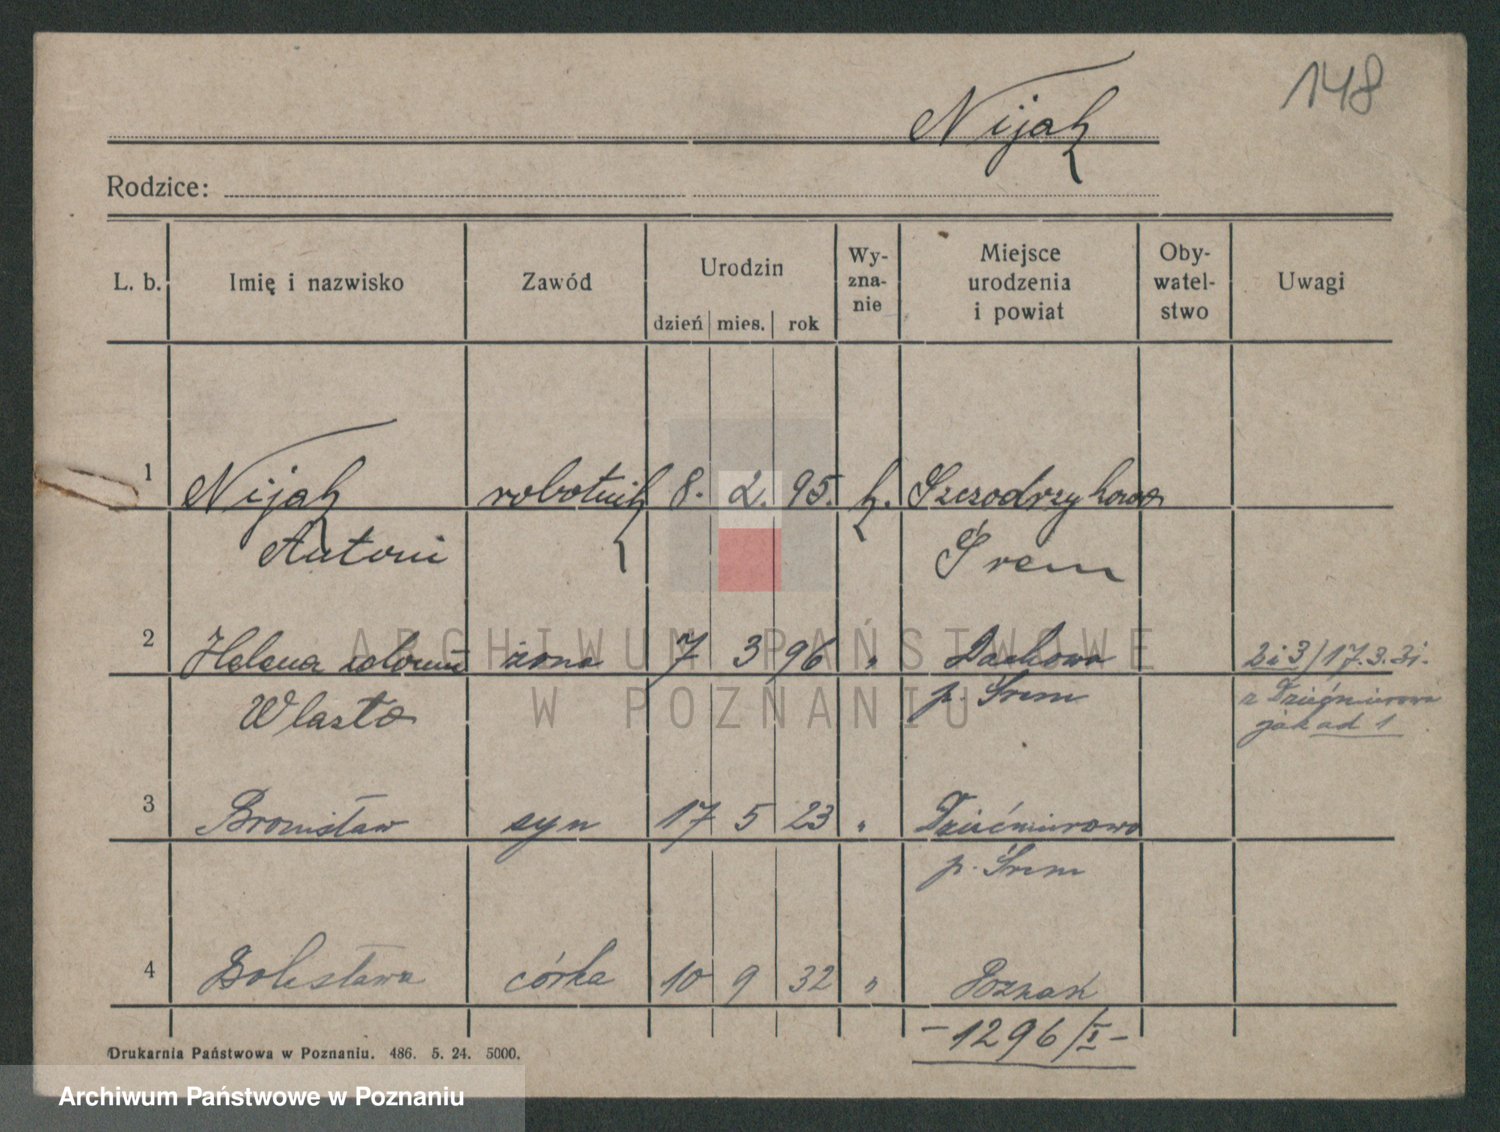 148
Nijak
Rodzice:
L. b. Imię i nazwisko Zawód Urodzin dzień mies. rok Wy-zna-nie Miejsce urodzenia i powiat Oby-watel-stwo Uwagi
1 Nijak robotnik 8. 2. 95. k. Szczodrzykowo
Antoni Śrem
2 Helena żona 7 3 96 " Dachowa 2 i 3/17.3.31.
Wlasta p. Śrem z Dziećmierowa
jak ad 1
3 Bronisław syn 17 5 23 " Dziećmierowo
p. Śrem
4 Bolesława córka 10 9 32 " Poznań
- 1296/I -
Drukarnia Państwowa w Poznaniu. 486. 5. 24. 5000.
ARCHIWUM PAŃSTWOWE
W POZNANIU
Archiwum Państwowe w Poznaniu